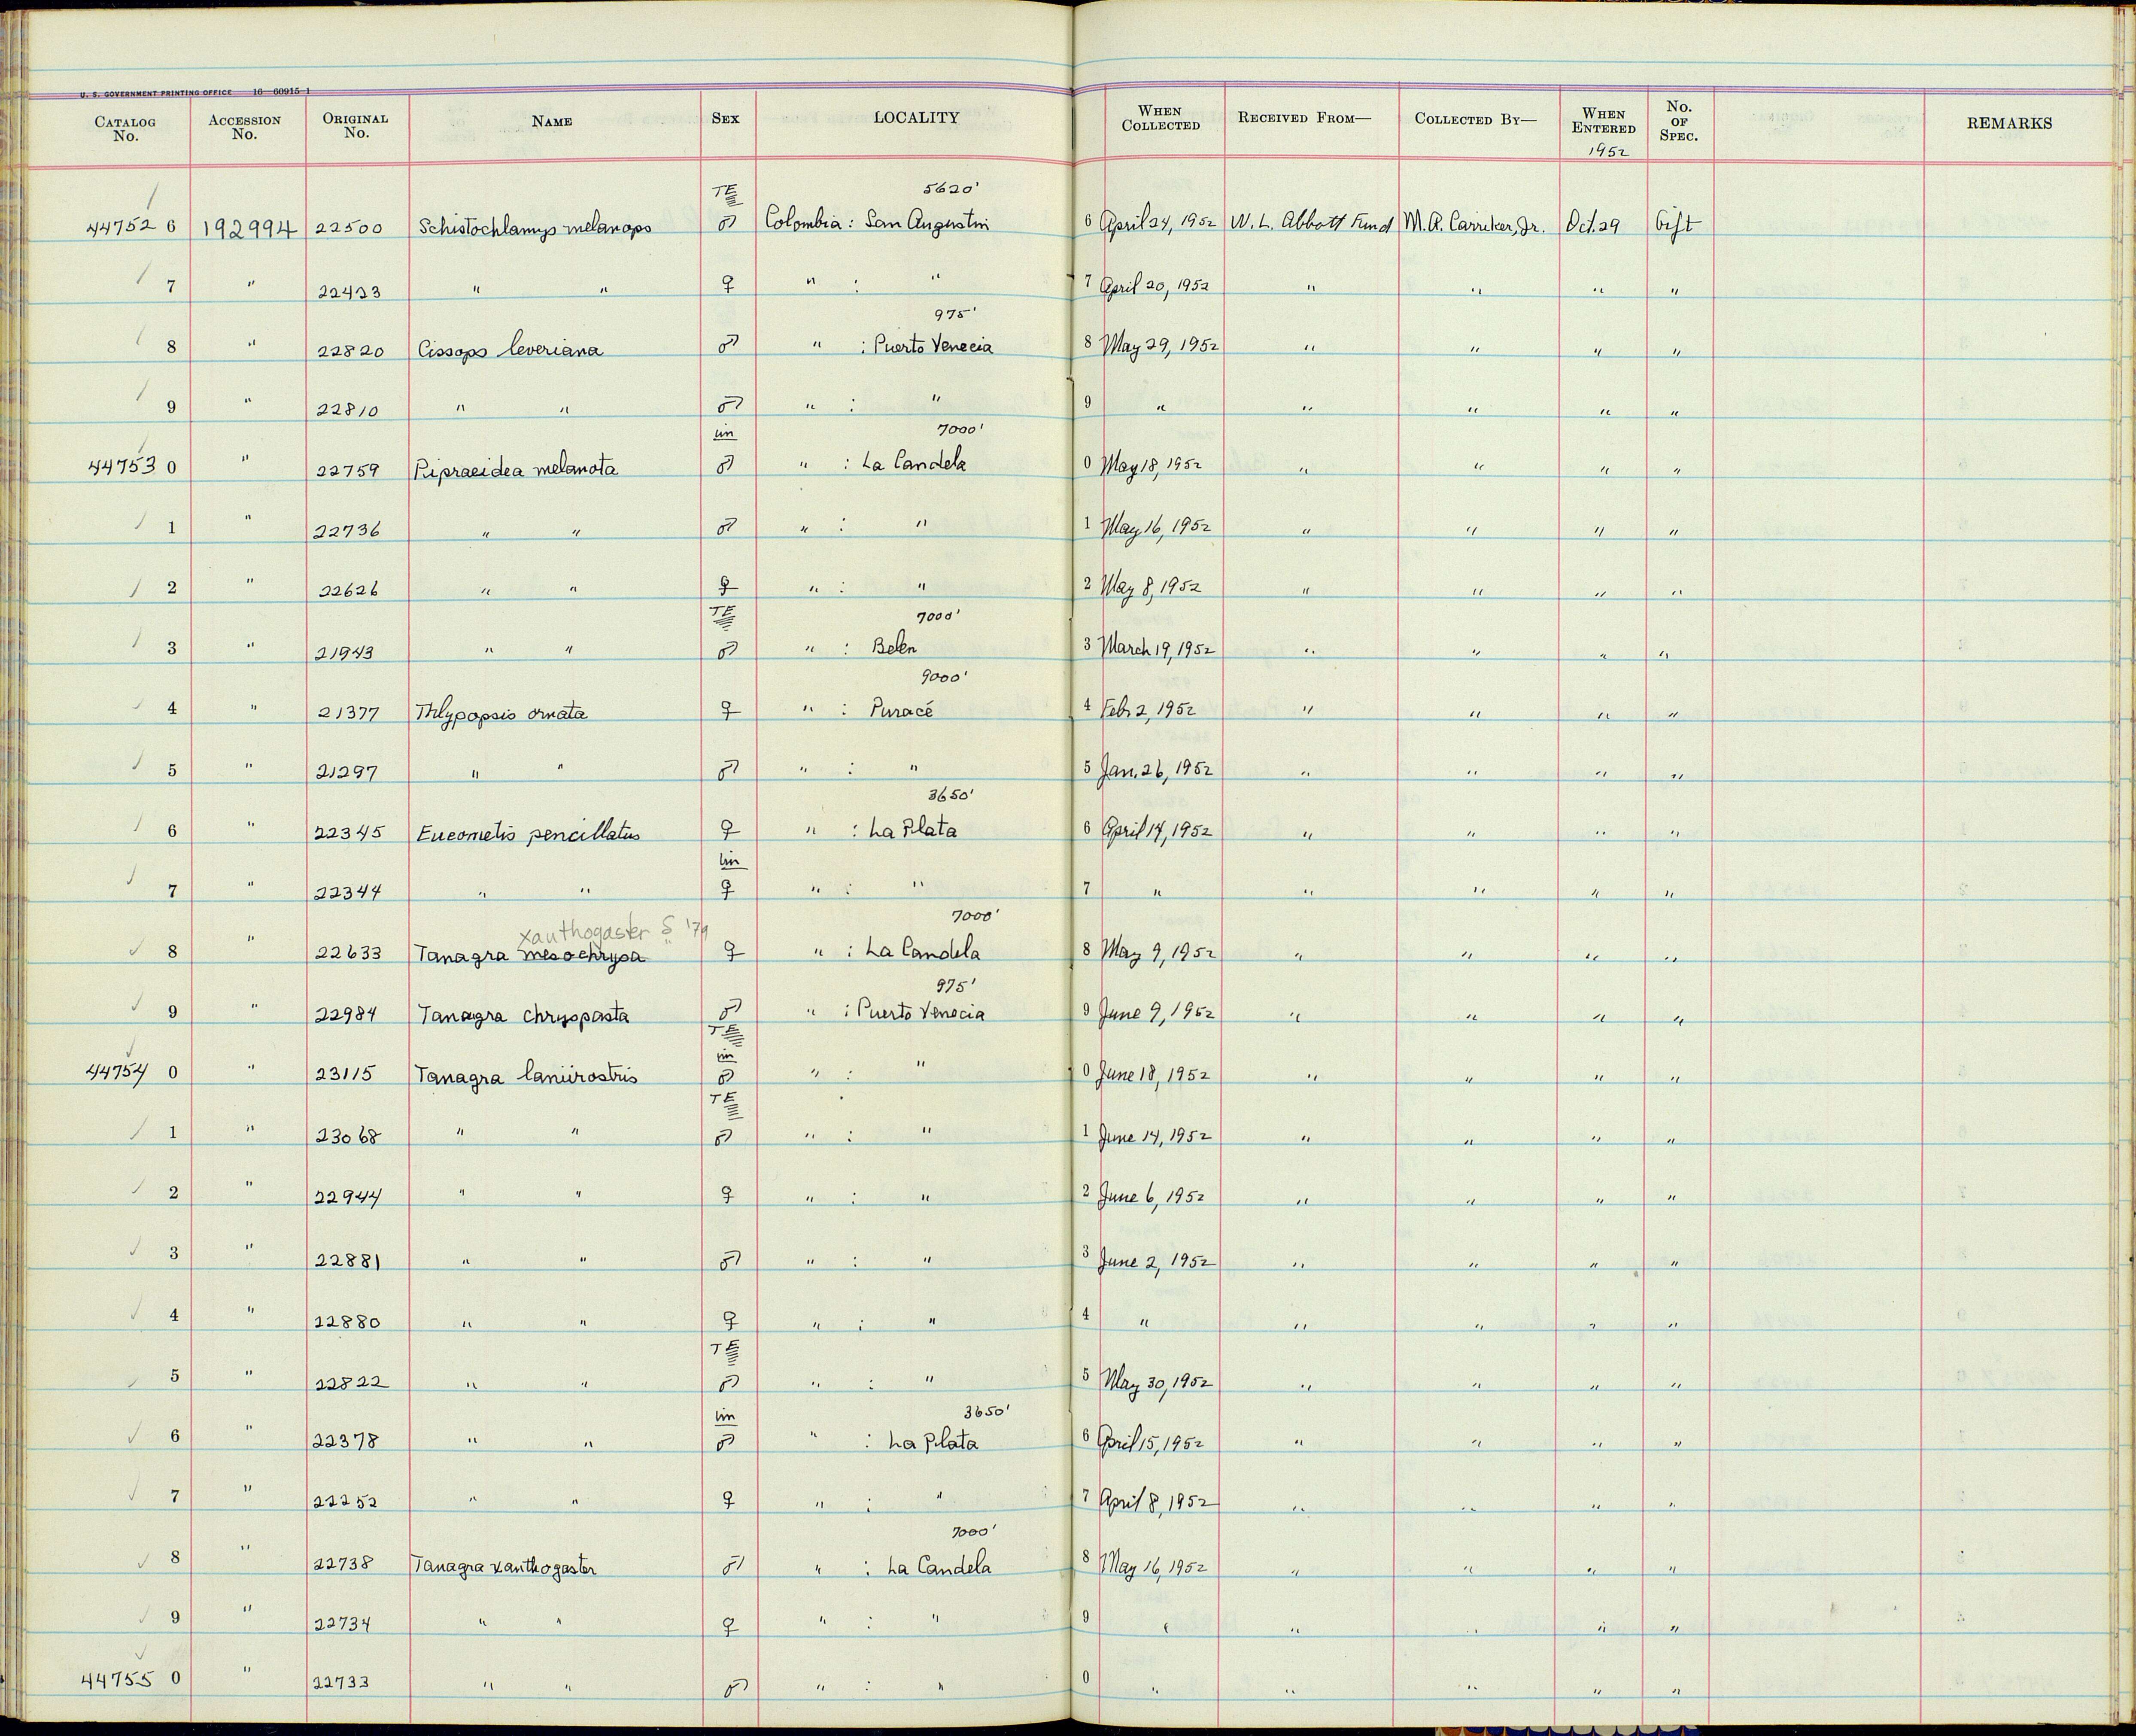 U. S. GOVERNMENT PRINTING OFFICE 16—60915-1
CATALOG No. ACCESSION No. ORIGINAL No. NAME SEX LOCALITY WHEN COLLECTED RECEIVED FROM— COLLECTED BY— WHEN ENTERED No. OF SPEC. REMARKS
1952
TE 5620'
44752 6 192994 22500 Schistochlamys melanops ♂ Colombia : San Augustin 6 April 24, 1952 W. L. Abbott Fund M. A. Carriker, Jr. Oct. 29 Gift
7 " 22433 " " ♀ " : " 7 April 20, 1952 " " " "
975'
8 " 22820 Cissops leveriana ♂ " : Puerto Venecia 8 May 29, 1952 " " " "
9 " 22810 " " ♂ " : " 9 " " " " "
im 7000'
44753 0 " 22759 Pipraeidea melanota ♂ " : La Candela 0 May 18, 1952 " " " "
1 " 22736 " " ♂ " : " 1 May 16, 1952 " " " "
2 " 22626 " " ♀ " : " 2 May 8, 1952 " " " "
TE 7000'
3 " 21943 " " ♂ " : Belen 3 March 19, 1952 " " " "
9000'
4 " 21377 Thlypopsis ornata ♀ " : Puracé 4 Feb. 2, 1952 " " " "
5 " 21297 " " ♂ " : " 5 Jan. 26, 1952 " " " "
3650'
6 " 22345 Eucometis pencillatus ♀ " : La Plata 6 April 14, 1952 " " " "
im
7 " 22344 " " ♀ " : " 7 " " " " "
xanthogaster S '79 7000'
8 " 22633 Tanagra mesochrysa ♀ " : La Candela 8 May 9, 1952 " " " "
975'
9 " 22984 Tanagra chryspasta ♂ " : Puerto Venecia 9 June 9, 1952 " " " "
TE
im
44754 0 " 23115 Tanagra laniirostris ♂ " : " 0 June 18, 1952 " " " "
TE
1 " 23068 " " ♂ " : " 1 June 14, 1952 " " " "
2 " 22944 " " ♀ " : " 2 June 6, 1952 " " " "
3 " 22881 " " ♂ " : " 3 June 2, 1952 " " " "
4 " 22880 " " ♀ " : " 4 " " " " "
TE
5 " 22822 " " ♂ " : " 5 May 30, 1952 " " " "
im 3650'
6 " 22378 " " ♂ " : La Plata 6 April 15, 1952 " " " "
7 " 22252 " " ♀ " : " 7 April 8, 1952 " " " "
7000'
8 " 22738 Tanagra xanthogaster ♂ " : La Candela 8 May 16, 1952 " " " "
9 " 22734 " " ♀ " : " 9 " " " " "
44755 0 " 22733 " " ♂ " : " 0 " " " " "